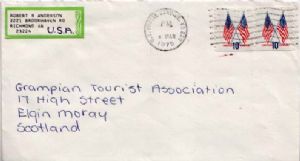 ROBERT R ANDERSON
2221 BROOKHAVEN RD
RICHMOND VA
23224
U.S.A.
PM
MAR
1975
10¢ 10¢
Grampian Tourist Association
17 High Street
Elgin Moray
Scotland